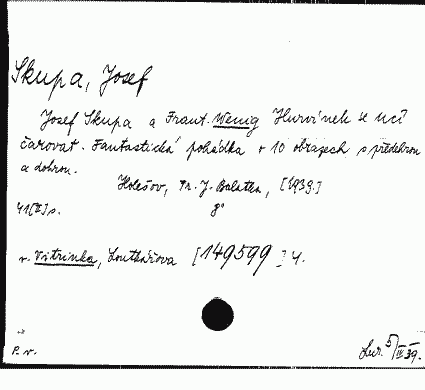 Skupa, Josef
Josef Skupa a Frant. Wenig Hurvínek se učí
čarovat. Fantastická pohádka v 10 obrazech s předehrou
a dohrou.
Holešov, Tr. J. Balatka, [1939.]
41[II] s. 8°
v. Vitrinka, Loutkářova [149599] 4.
P. v. Lur. 5/III 39.